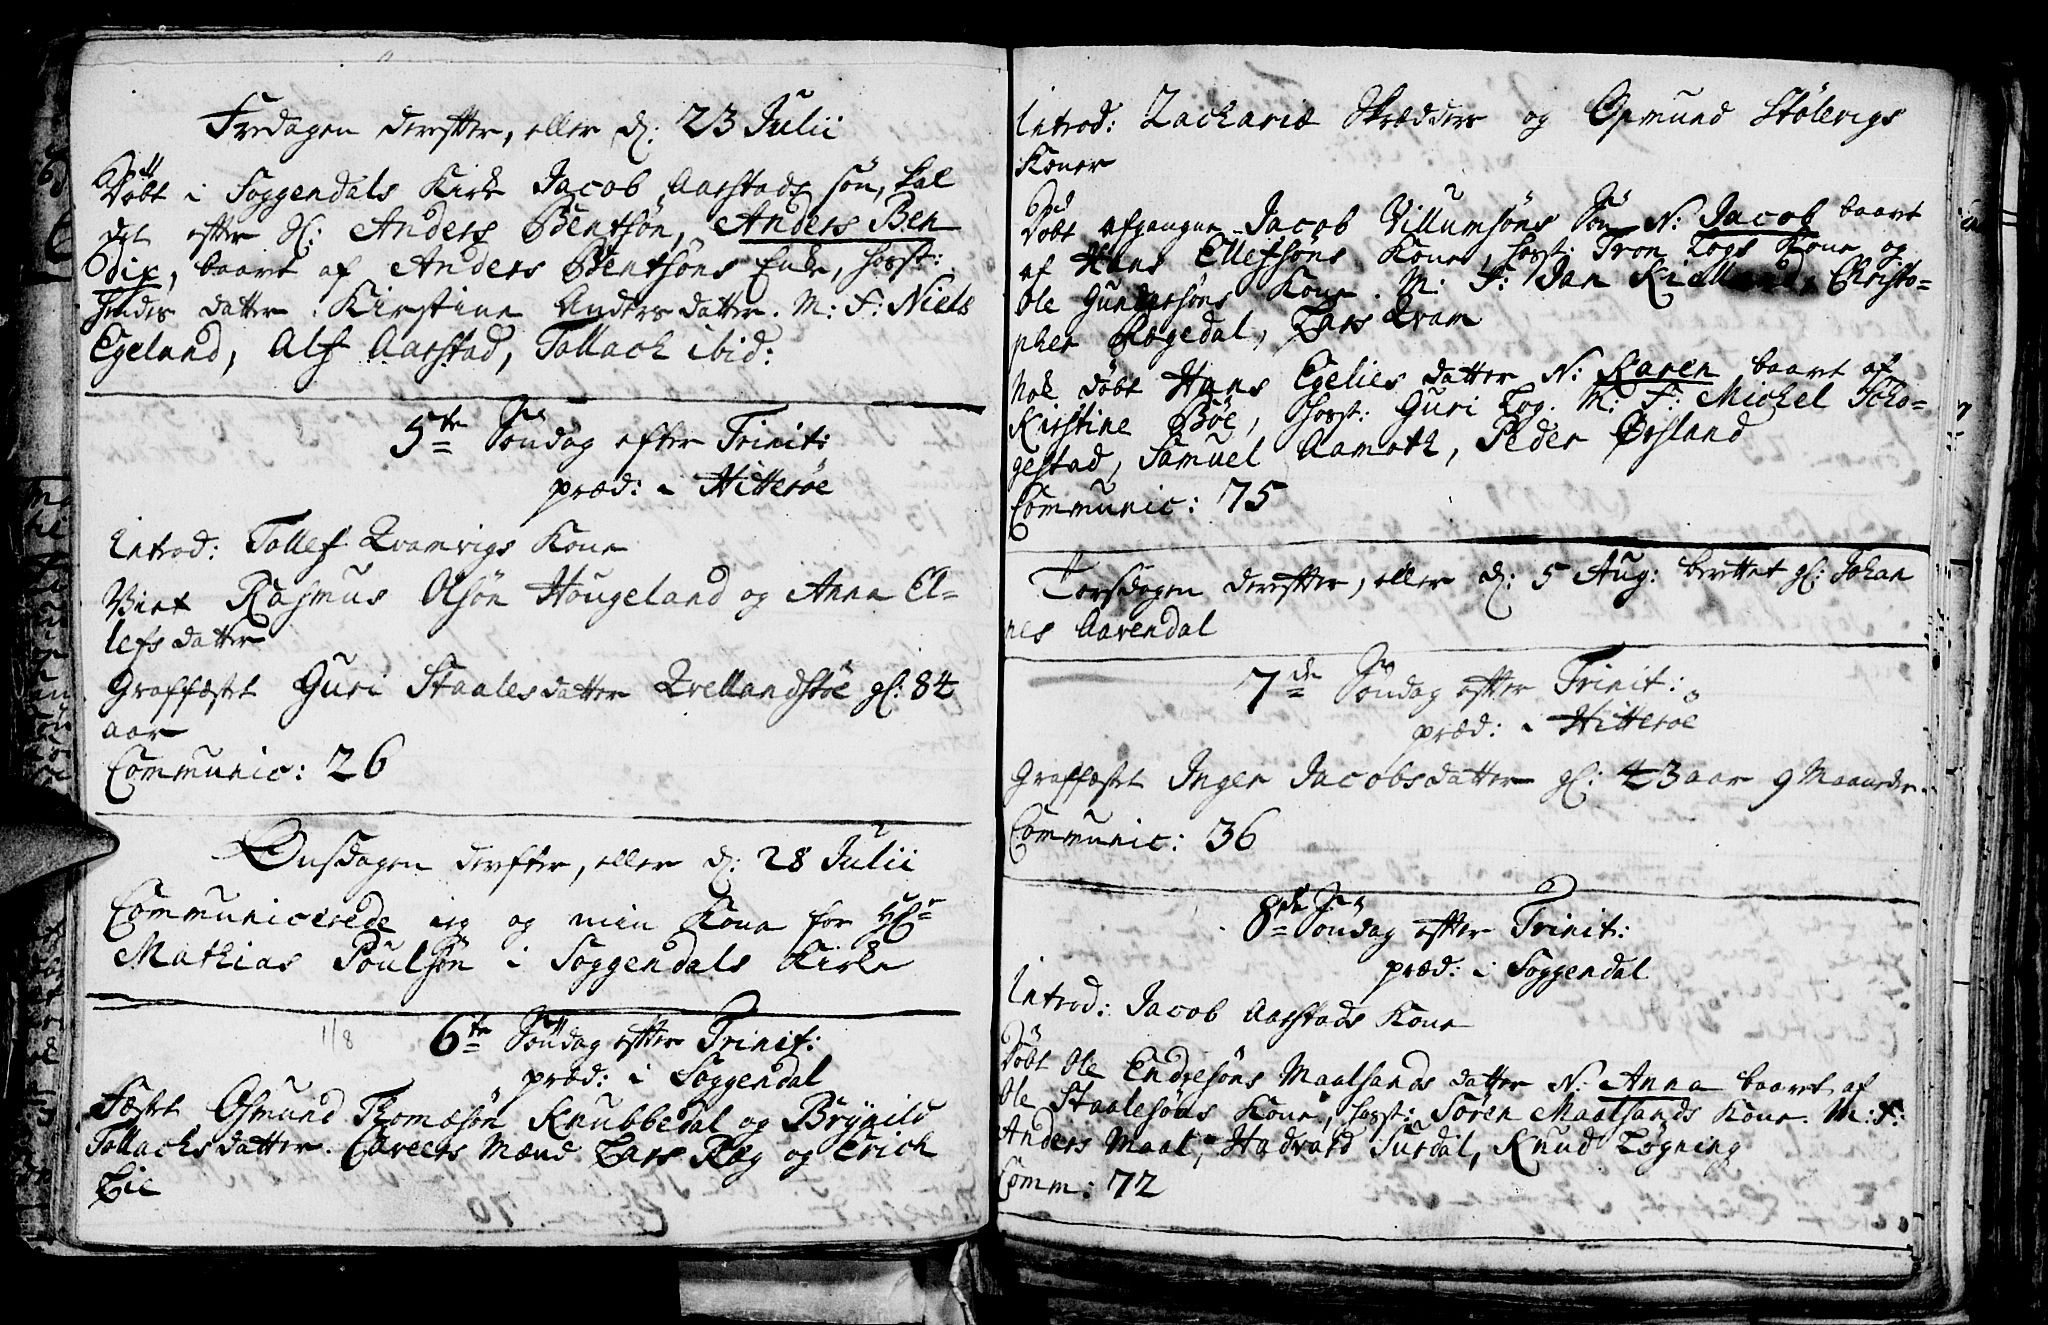 Fredagen derefter, eller d: 23 Julii
Döbt i Soggendals Kirke Jacob Aarstads sön, kal
det efter H: Anders Bentsön, Anders Ben
dix, baaret af Anders Bentsöns Enke, hosst:
hendes datter Kirstine Andersdatter. M: F: Niels
Egeland, Alf Aarstad, Tollach ibid:
5te Söndag efter Trinit:
præd: i Hitteröe
Introd: Tollef Qvamvigs Kone
Viet Rasmus Olsön Hougeland og Anna El-
lefsdatter
Graffæstet Guri Staalesdatter Qvellandstöe gl: 84
aar
Communic: 26
Onsdagen derefter, eller d: 28 Julii
Communicerede jeg og min Kone for Hr
Mathias Poulsön i Soggendals Kirke
1/8 6te Söndag efter Trinit:
præd: i Soggendal
Fæstet Osmund Thomæsön Knubbedal og Brynild
Tollachsdatter. Caveers Mænd Lars Ræg og Erich
Lie
Introd: Zachariæ Skrædders og Osmund Stölevigs
Koner
Döbt afgangne Jacob Villumsöns Sön N: Jacob baaret
af Hans Ellefsöns Kone, hosst: Tron Logs Kone og
Ole Gundersöns Kone. M: F: Jan Kielland, Christo-
pher Regedal, Lars Qvam
Nok döbt Hans Egelies datter N: Karen baaret af
Kirstine Böe, hosst: Guri Log. M: F: Michel Scho-
gestad, Samuel Aamoth, Peder Örsland
Communic: 75
Torsdagen derefter, eller d: 5 Aug: berettet gl: Johan
nes Aarendal
7de Söndag efter Trinit:
præd: i Hitteröe
Graffæstet Inger Jacobsdatter gl: 43 aar 9 Maaneder
Communic: 36
8de Söndag efter Trinit:
præd: i Soggendal
Introd: Jacob Aarstads Kone
Döbt Ole Endresöns Maalsands datter N: Anna baaret af
Ole Staalesöns Kone, hosst: Sören Maalsands Kone. M: F:
Anders Maal, Hadvard Surdal, Knud Lögning
Comm: 72